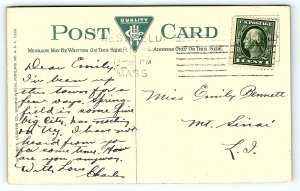 POST CARD
QUALITY
MESSAGE MAY BE WRITTEN ON THIS SIDE.
ADDRESS ONLY ON THIS SIDE.
U.S. POSTAGE
1 CENT 1
PM
MASS
Dear Emily:
I've been up
this town for a
few days. Spring-
field is some fine
big city, has nothing
on Ny. I have not
heard from you
for some time. How
are you anyway.
With Love Charles
Miss Emily Bennett
Mt. Sinai
L.I.